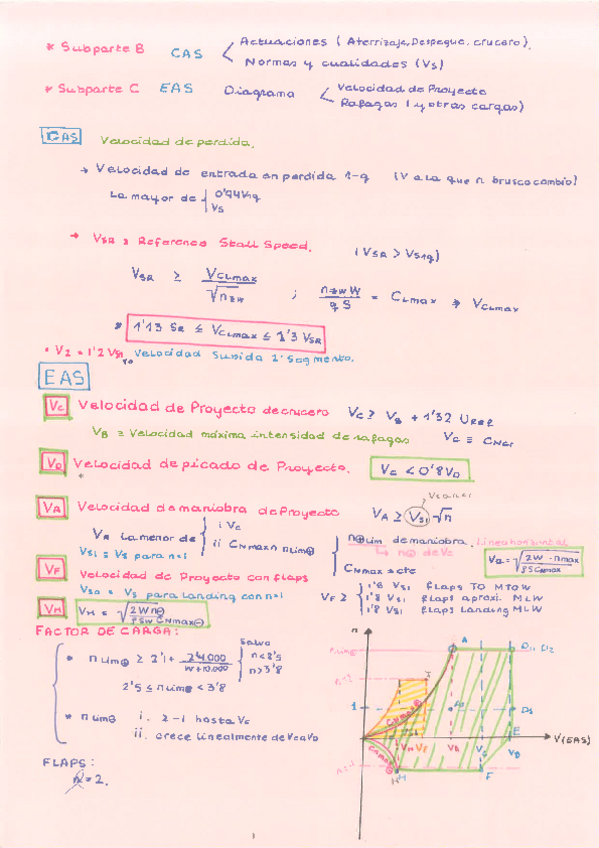 * Subparte B CAS Actuaciones (Aterrizaje, Despegue, crucero).
Normas y cualidades (Vs)
* Subparte C EAS Diagrama Velocidad de Proyecto
Rafagas (y otras cargas)
CAS Velocidad de perdida.
→ Velocidad de entrada en perdida 1-g (V a la que n brusco cambio)
La mayor de 0'94V1g
Vs
→ VSR ≡ Reference Stall Speed. (VSR > VS1g)
VSR ≥ VCLmax / √nzw ; nzw W / q S = CLmax → VCLmax
* 1'13 SR ≤ VCLmax ≤ 1'3 VSR
• V2 = 1'2 VS1 Velocidad Subida 2º Segmento.
EAS
VC Velocidad de Proyecto de crucero VC ≥ VB + 1'32 UREF
VB ≡ Velocidad máxima intensidad de rafagas
VD Velocidad de picado de Proyecto. VC < 0'8VD
VA Velocidad de maniobra de Proyecto VA ≥ VS1 √n
VA La menor de i VC
ii CNmax n nlim⊕
nlim de maniobra. Linea horizontal
CNmax = cte
VA = √(2W · nmax / ρSCNmax)
VS1 ≡ Vs para n=1
VF Velocidad de Proyecto con flaps
VS0 = Vs para landing con n=1
VF ≥ 1'6 VS1 flaps TO MTOW
1'8 VS1 flaps aproxi. MLW
1'8 VS1 flaps Landing MLW
VH VH =
FACTOR DE CARGA:
* nlim⊕ ≥ 2'1 + 24.000 / W+10.000 Salvo n<2'5
n>3'8
2'5 ≤ nlim⊕ < 3'8
* nlim⊖ i. 2-1 hasta VC
ii. crece linealmente de VC a VD
FLAPS:
n = 2.
n
A
D1, D2
n=2
1
n=-1
VH VF VA VC VD V(EAS)
E
H F
1